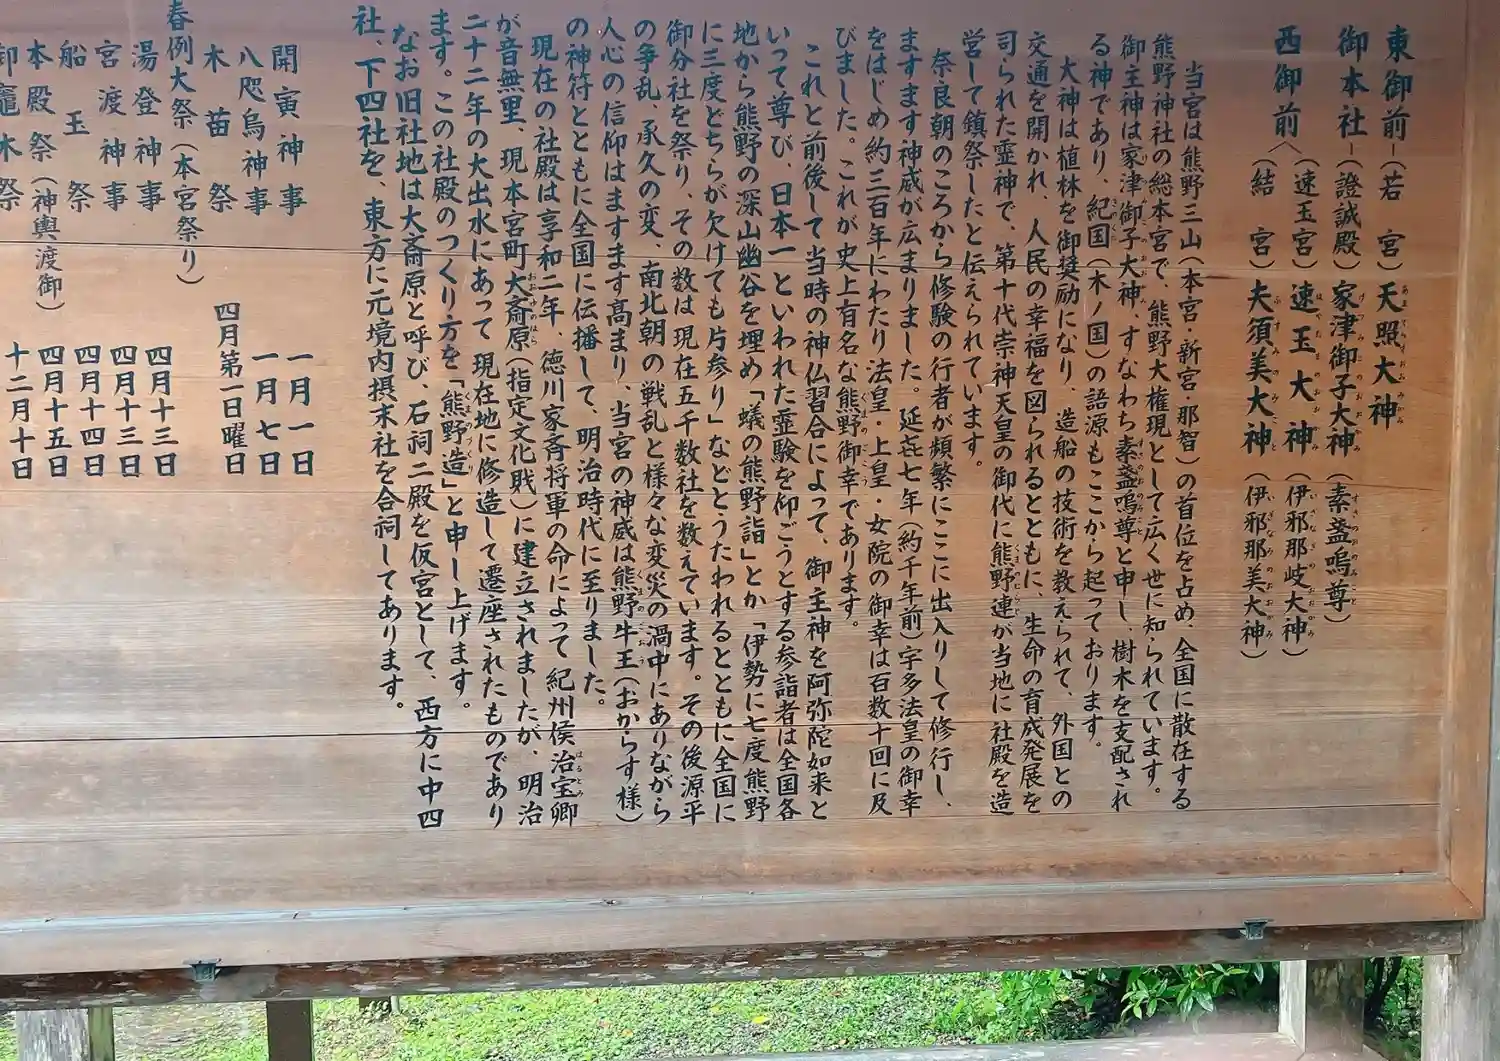 東御前─(若宮)天照大神
御本社─(證誠殿)家津御子大神(素盞嗚尊)
西御前
(速玉宮)速玉大神(伊邪那岐大神)
(結宮)夫須美大神(伊邪那美大神)
当宮は熊野三山(本宮・新宮・那智)の首位を占め、全国に散在する
熊野神社の総本宮で、熊野大権現として広く世に知られています。
御主神は家津御子大神、すなわち素盞嗚尊と申し、樹木を支配され
る神であり、紀国(木ノ国)の語源もここから起っております。
大神は植林を御奨励になり、造船の技術を教えられて、外国との
交通を開かれ、人民の幸福を図られるとともに、生命の育成発展を
司られた霊神で、第十代崇神天皇の御代に熊野連が当地に社殿を造
営して鎮祭したと伝えられています。
奈良朝のころから修験の行者が頻繁にここに出入りして修行し、
ますます神威が広まりました。延喜七年(約千年前)宇多法皇の御幸
をはじめ約三百年にわたり法皇・上皇・女院の御幸は百数十回に及
びました。これが史上有名な熊野御幸であります。
これと前後して当時の神仏習合によって、御主神を阿弥陀如来と
いって尊び、日本一といわれた霊験を仰ごうとする参詣者は全国各
地から熊野の深山幽谷を埋め「蟻の熊野詣」とか「伊勢に七度熊野
に三度どちらが欠けても片参り」などとうたわれるとともに全国に
御分社を祭り、その数は現在五千数社を数えています。その後源平
の争乱、承久の変、南北朝の戦乱と様々な変災の渦中にありながら
人心の信仰はますます高まり、当宮の神威は熊野牛王(おからす様)
の神符とともに全国に伝播して、明治時代に至りました。
現在の社殿は享和二年、徳川家斉将軍の命によって紀州侯治宝卿
が音無里、現本宮町大斎原(指定文化財)に建立されましたが、明治
二十二年の大出水にあって現在地に修造して遷座されたものであり
ます。この社殿のつくり方を「熊野造」と申し上げます。
なお旧社地は大斎原と呼び、石祠二殿を仮宮として、西方に中四
社、下四社を、東方に元境内摂末社を合祠してあります。
開寅神事 一月一日
八咫烏神事 一月七日
木苗祭 四月第一日曜日
春例大祭(本宮祭り)
湯登神事 四月十三日
宮渡神事 四月十三日
船玉祭 四月十四日
本殿祭(神輿渡御) 四月十五日
御竈木祭 十二月十日